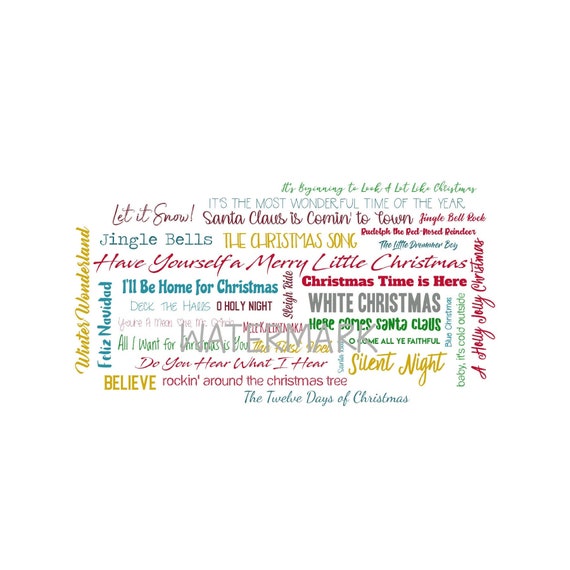 It's Beginning to Look A Lot Like Christmas
IT'S THE MOST WONDERFUL TIME OF THE YEAR
Let it Snow!
Santa Claus is Comin' to Town
Jingle Bell Rock
Rudolph the Red-Nosed Reindeer
Jingle Bells
THE CHRISTMAS SONG
The Little Drummer Boy
Winter Wonderland
Have Yourself a Merry Little Christmas
A Holly Jolly Christmas
Feliz Navidad
I'll Be Home for Christmas
Sleigh Ride
Christmas Time is Here
Deck the Halls
O HOLY NIGHT
WHITE CHRISTMAS
Blue Christmas
baby, it's cold outside
You're A Mean One Mr. Grinch
Mele Kalikimaka
Here comes santa claus
WATERMARK
All I Want for Christmas is You
The First Noel
Santa Baby
O COME ALL YE FAITHFUL
Do You Hear What I Hear
Silent Night
BELIEVE
rockin' around the christmas tree
The Twelve Days of Christmas